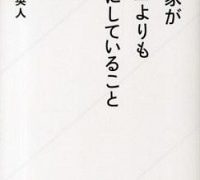 家が
よりも
にしていること
英人